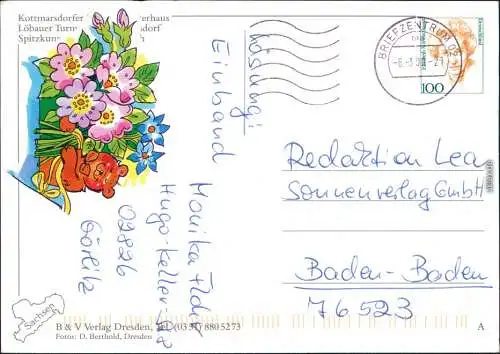 Kottmarsdorfer erhaus
Löbauer Turm dorf
Spitzkun
Lösung:
Einband
Monika
Hugo-Keller-
02826
Görlitz
BRIEFZENTRUM 02
100
Redaktion Lea
Sonnenverlag GmbH
Baden-Baden
76523
Sachsen
B & V Verlag Dresden, Tel. (03 51) 880 5273
Fotos: D. Berthold, Dresden
A